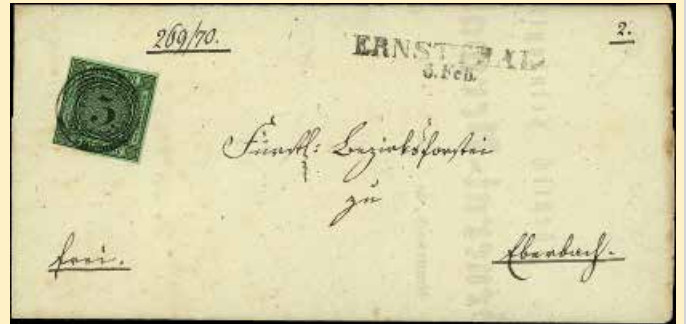 269/70.
2.
ERNSTTHAL
6. Feb.
5
Fürstl: Bezirksforstei
zu
frei.
Eberbach.